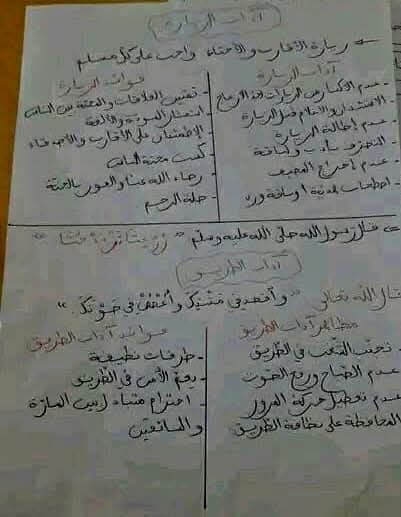 آداب الزيارة
زيارة الأقارب والأحباء واجب على كل مسلم
آداب الزيارة
- عدم الإكثار من الزيارات لعدم الإزعاج
- الاستئذان والإعلام قبل الزيارة
- عدم إطالة الزيارة
- التصرف بأدب ولباقة
- عدم إحراج المضيف
- اصطحاب هدية أو باقة ورد
فوائد الزيارة
- تمتين العلاقات والمحبة بين الناس
- انتشار المودة والألفة
- الاطمئنان على الأقارب والأصدقاء
- كسب محبة الناس
- رضاء الله عنا والفوز بالجنة
- صلة الرحم
قال رسول الله صلى الله عليه وسلم « زر غبا تزدد حبا »
آداب الطريق
قال الله تعالى " واقصد في مشيك واغضض في صوتك "
مظاهر آداب الطريق
- تجنب اللعب في الطريق
عدم الصياح ورفع الصوت
عدم تعطيل حركة المرور
المحافظة على نظافة الطريق
فوائد آداب الطريق
- طرقات نظيفة
- يعم الأمن في الطريق
- احترام متبادل بين المارة
والسائقين